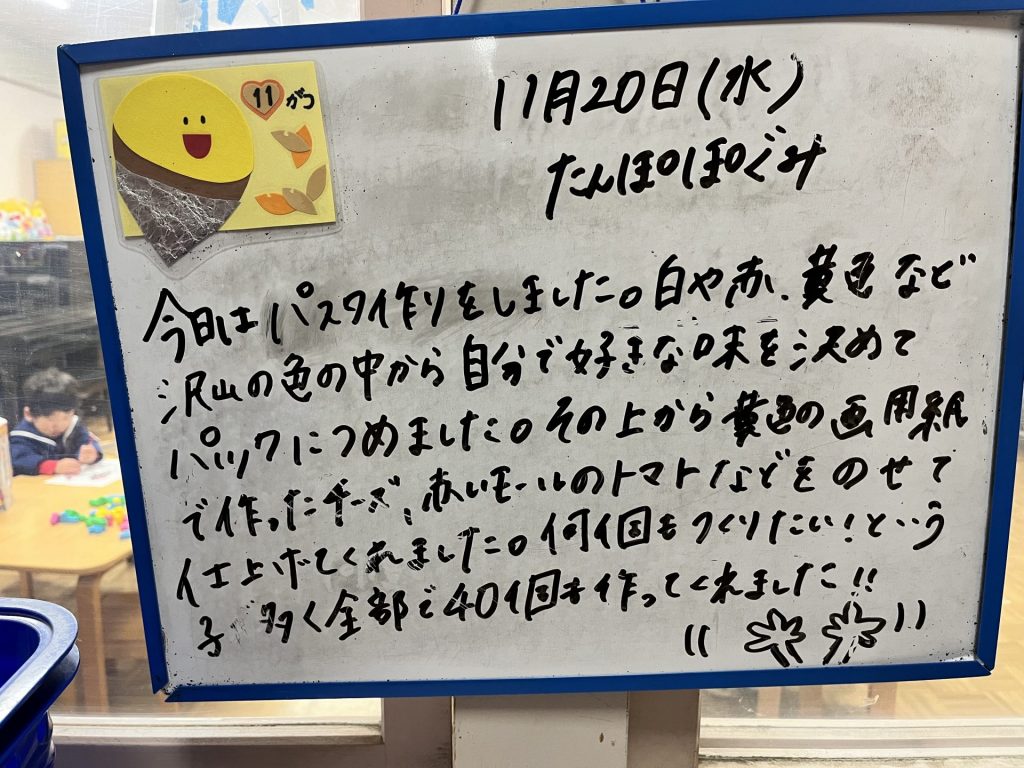 11がつ
11月20日(水)
たんぽぽぐみ
今日はパスタ作りをしました。白や赤、黄色など
沢山の色の中から自分で好きな味を決めて
パックにつめました。その上から黄色の画用紙
で作ったチーズ、赤いモールのトマトなどをのせて
仕上げてくれました。何個もつくりたい!という
子が多く全部で40個も作ってくれました!!